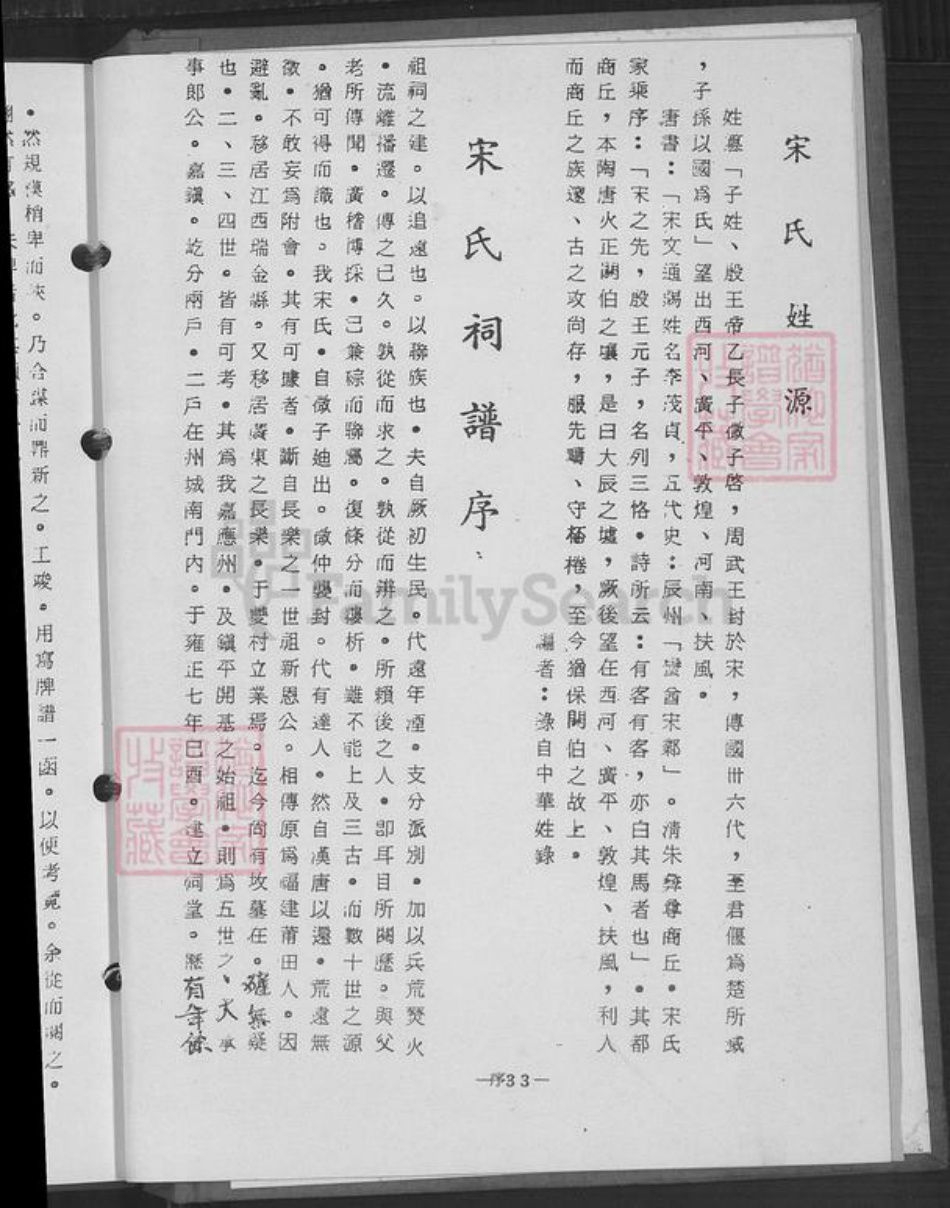 宋氏姓源
姓纂「子姓、殷王帝乙長子微子啓，周武王封於宋，傳國卅六代，至君偃爲楚所滅
，子孫以國爲氏」望出西河、廣平、敦煌、河南、扶風。
唐書：「宋文通賜姓名李茂貞，五代史：辰州「蠻酋宋鄴」。清朱彝尊商丘。宋氏
家乘序：「宋之先，殷王元子，名列三恪。詩所云：有客有客，亦白其馬者也」。其都
商丘，本陶唐火正閼伯之壤，是曰大辰之墟，厥後望在西河、廣平、敦煌、扶風，利人
而商丘之族邃、古之攻尚存，服先疇、守桮棬，至今猶保閼伯之故上。
編者：錄自中華姓錄
宋氏祠譜序：
祖祠之建。以追遠也。以聯族也。夫自厥初生民。代遠年湮。支分派別。加以兵荒燹火
。流離播遷。傳之已久。孰從而求之。孰從而辨之。所賴後之人。卽耳目所閱歷。與父
老所傳聞。廣稽博採。己兼綜而聯屬。復條分而縷析。雖不能上及三古。而數十世之源
。猶可得而識也。我宋氏。自微子廸出。微仲襲封。代有達人。然自漢唐以還。荒遠無
徵。不敢妄爲附會。其有可據者。斷自長樂之一世祖新恩公。相傳原爲福建莆田人。因
避亂。移居江西瑞金縣。又移居廣東之長樂。于雙村立業焉。迄今尚有坟墓在。確無疑
也。二、三、四世。皆有可考。其爲我嘉應州。及鎭平開基之始祖。則爲五世之、大承
事郎公。嘉鎭。屹分兩戶。二戶在州城南門內。于雍正七年已酉。建立祠堂。歷有年餘
—序33—
。然規模稍卑而浹。乃合謀而鼎新之。工竣。用寫牌譜一函。以便考覓。余從而閱之。